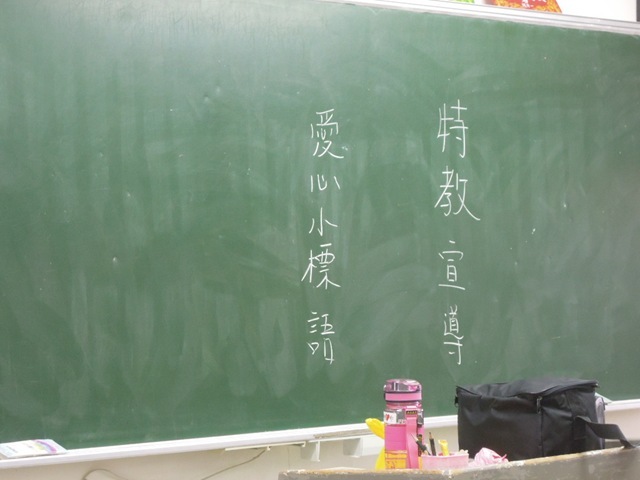 特教宣導
愛心小標語